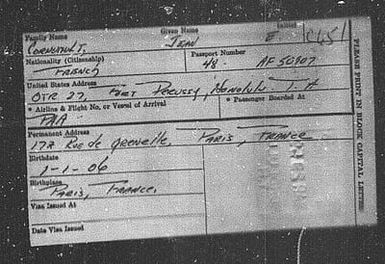 Family Name Given Name Initial
JEAN E
Nationality (Citizenship) Passport Number
FRENCH 48 - AF 50907
United States Address
QTR 27, FORT DERUSSY, HONOLULU T-H
* Airline & Flight No. or Vessel of Arrival * Passenger Boarded At
PAA
Permanent Address
178 RUE de GRENELLE, PARIS, FRANCE
Birthdate
1-1-06
Birthplace
PARIS, FRANCE.
Visa Issued At
Date Visa Issued
PLEASE PRINT IN BLOCK CAPITAL LETTERS